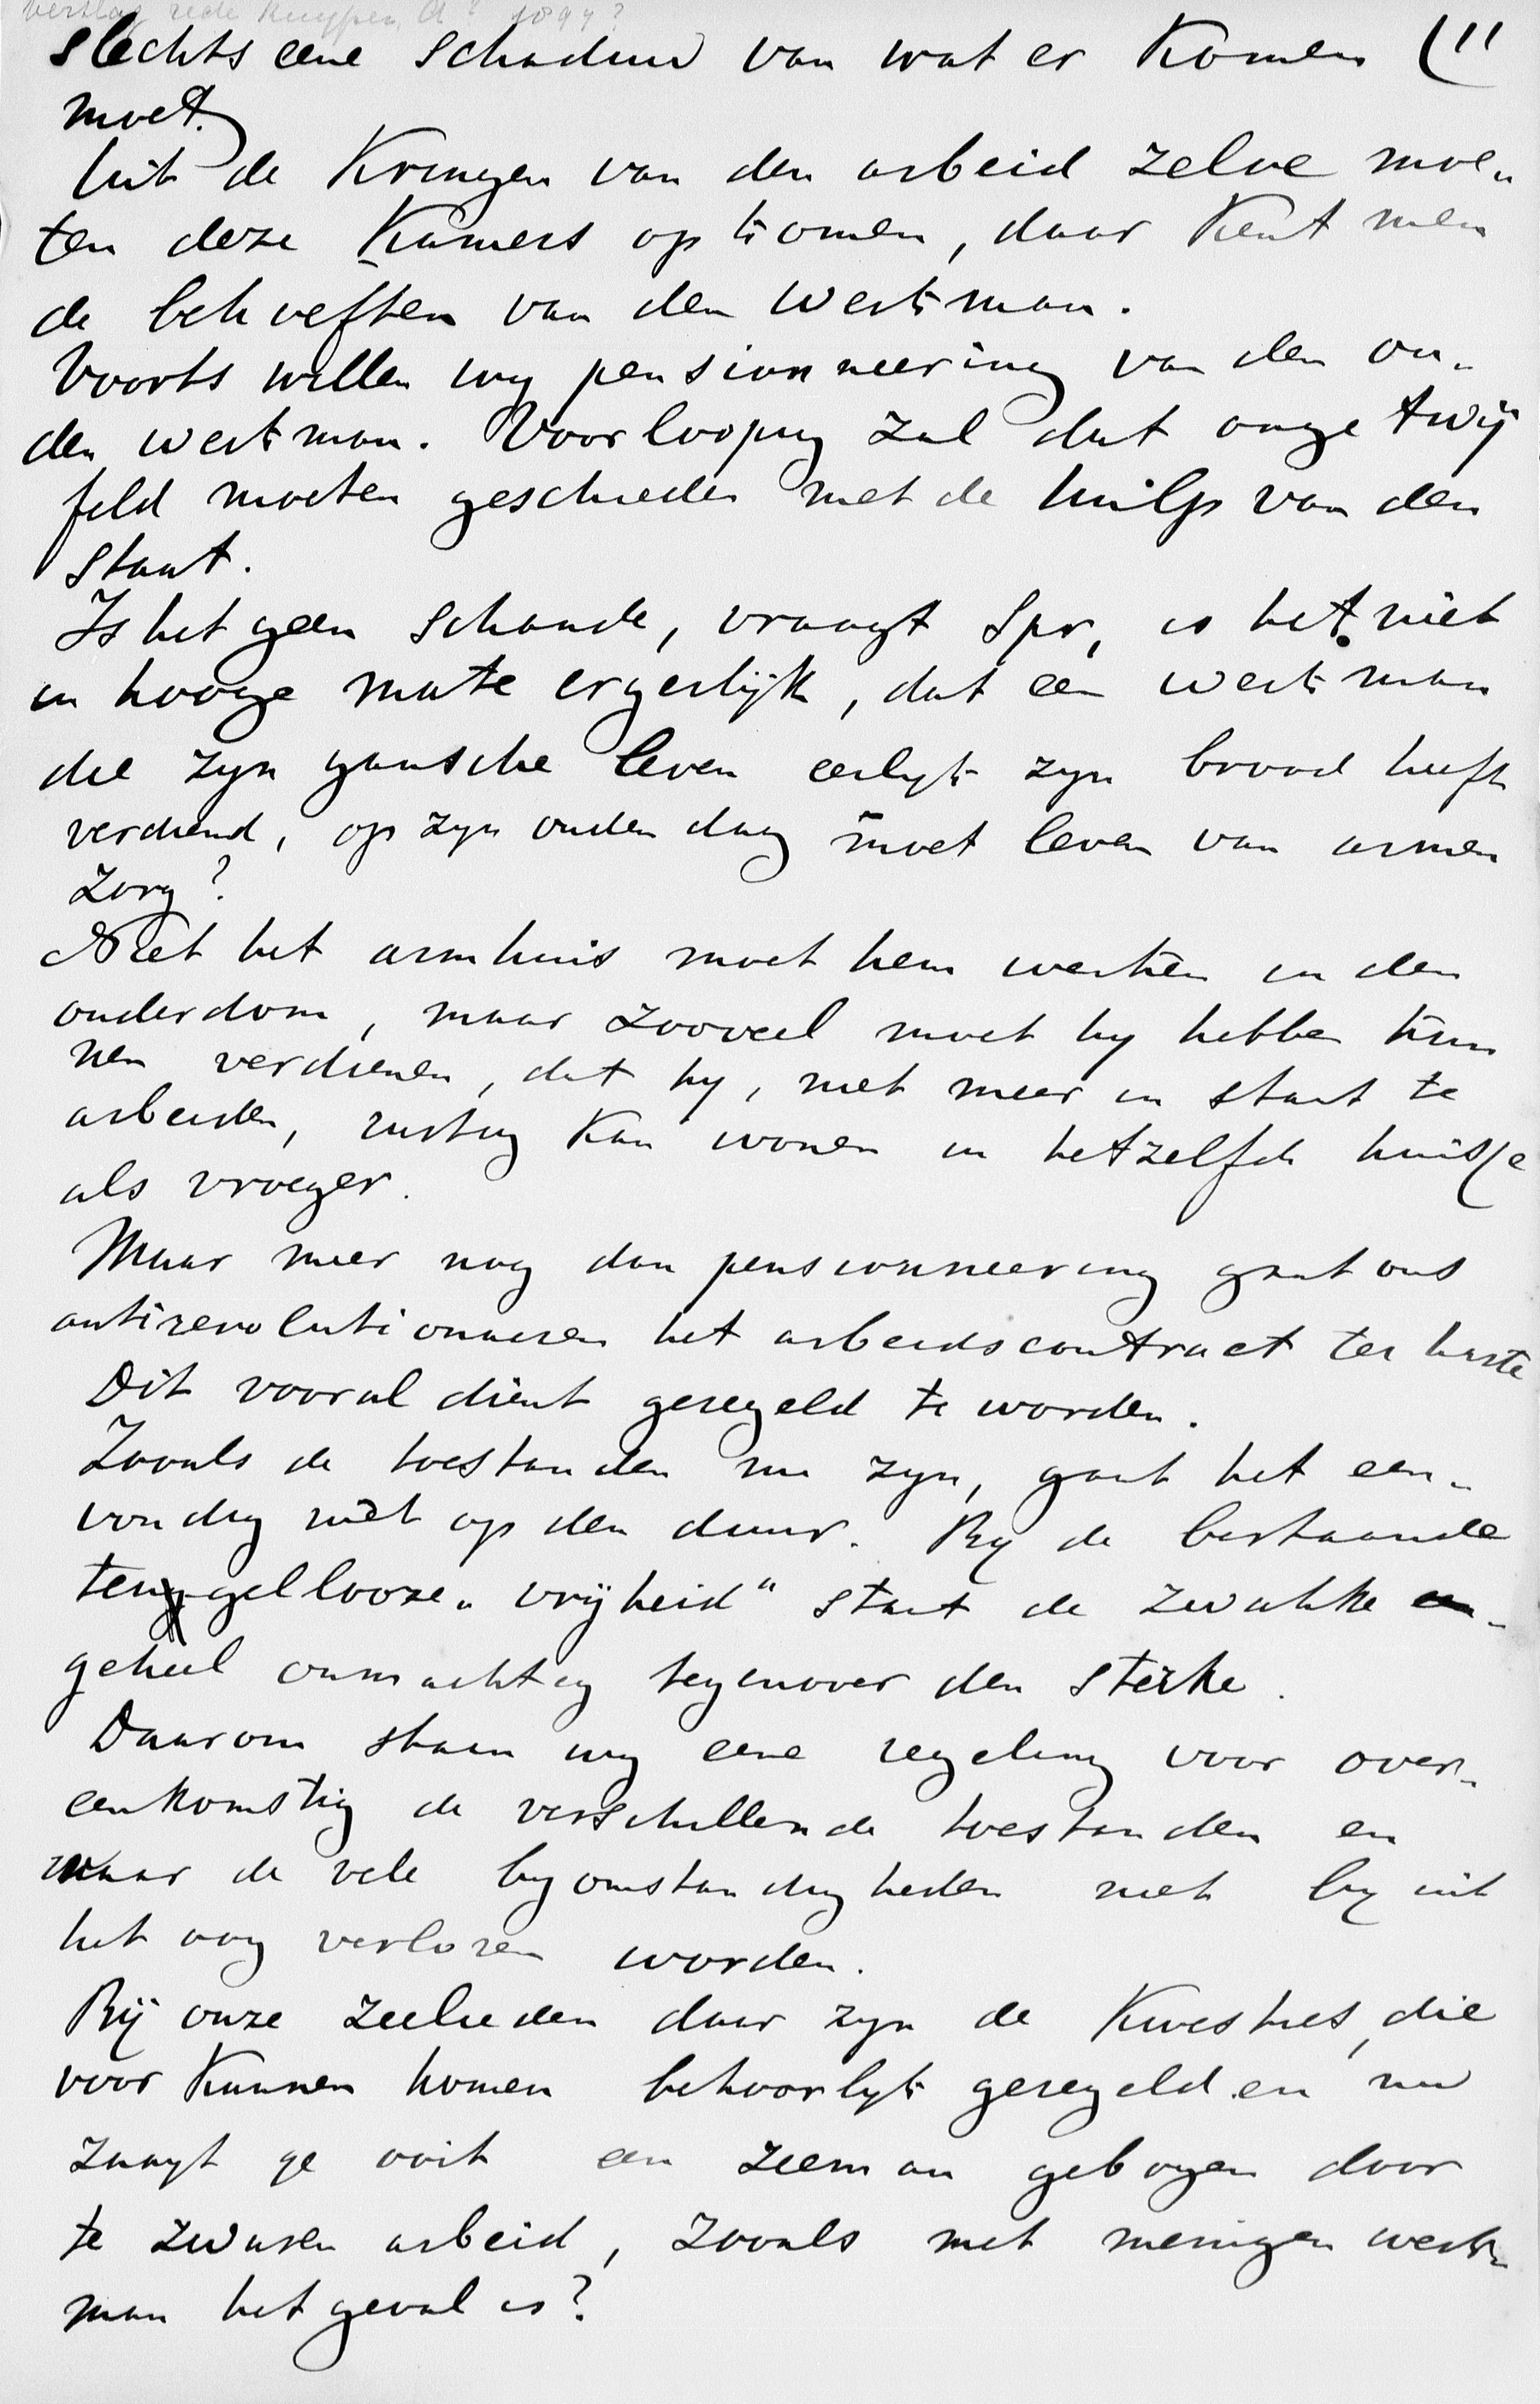 verslag rede Kuyper, A? 1894?
slechts eene schaduw van wat er komen (11
moet.
Uit de Kringen van den arbeid zelve moe-
ten deze Kamers opkomen, daar Kent men
de behoeften van den werkman.
Voorts willen wy pensionneering van den ou-
den werkman. Voorloopig zal dat ongetwij
feld moeten geschieden met de hulp van den
Staat.
Is het geen schande, vraagt Spr, is het niet
in hooge mate ergerlijk, dat een werkman
die zyn gansche leven eerlyk zyn brood heeft
verdiend, op zyn ouden dag moet leven van armen
zorg?
Niet het armhuis moet hem wachten in den
ouderdom, maar zooveel moet hy hebben kun
nen verdienen, dat hy, niet meer in staat te
arbeiden, rustig Kan wonen in hetzelfde huisje
als vroeger.
Maar meer nog dan pensionneering gaat ons
antirevolutionairen het arbeidscontract ter harte
Dit vooral dient geregeld te worden.
Zooals de toestanden nu zyn, gaat het een-
voudig niet op den duur. By de bestaande
teugellooze „vrijheid" staat de zwakke
geheel onmachtig tegenover den sterke.
Daarom staan wy eene regeling voor over-
eenkomstig de verschillende toestanden en
waar de vele byomstandigheden niet by uit
het oog verloren worden.
Bij onze zeelieden daar zyn de Kwesties, die
voor Kunnen komen behoorlyk geregeld en nu
zaagt ge ooit een zeeman gebogen door
te zwaren arbeid, zooals met menigen werk-
man het geval is?